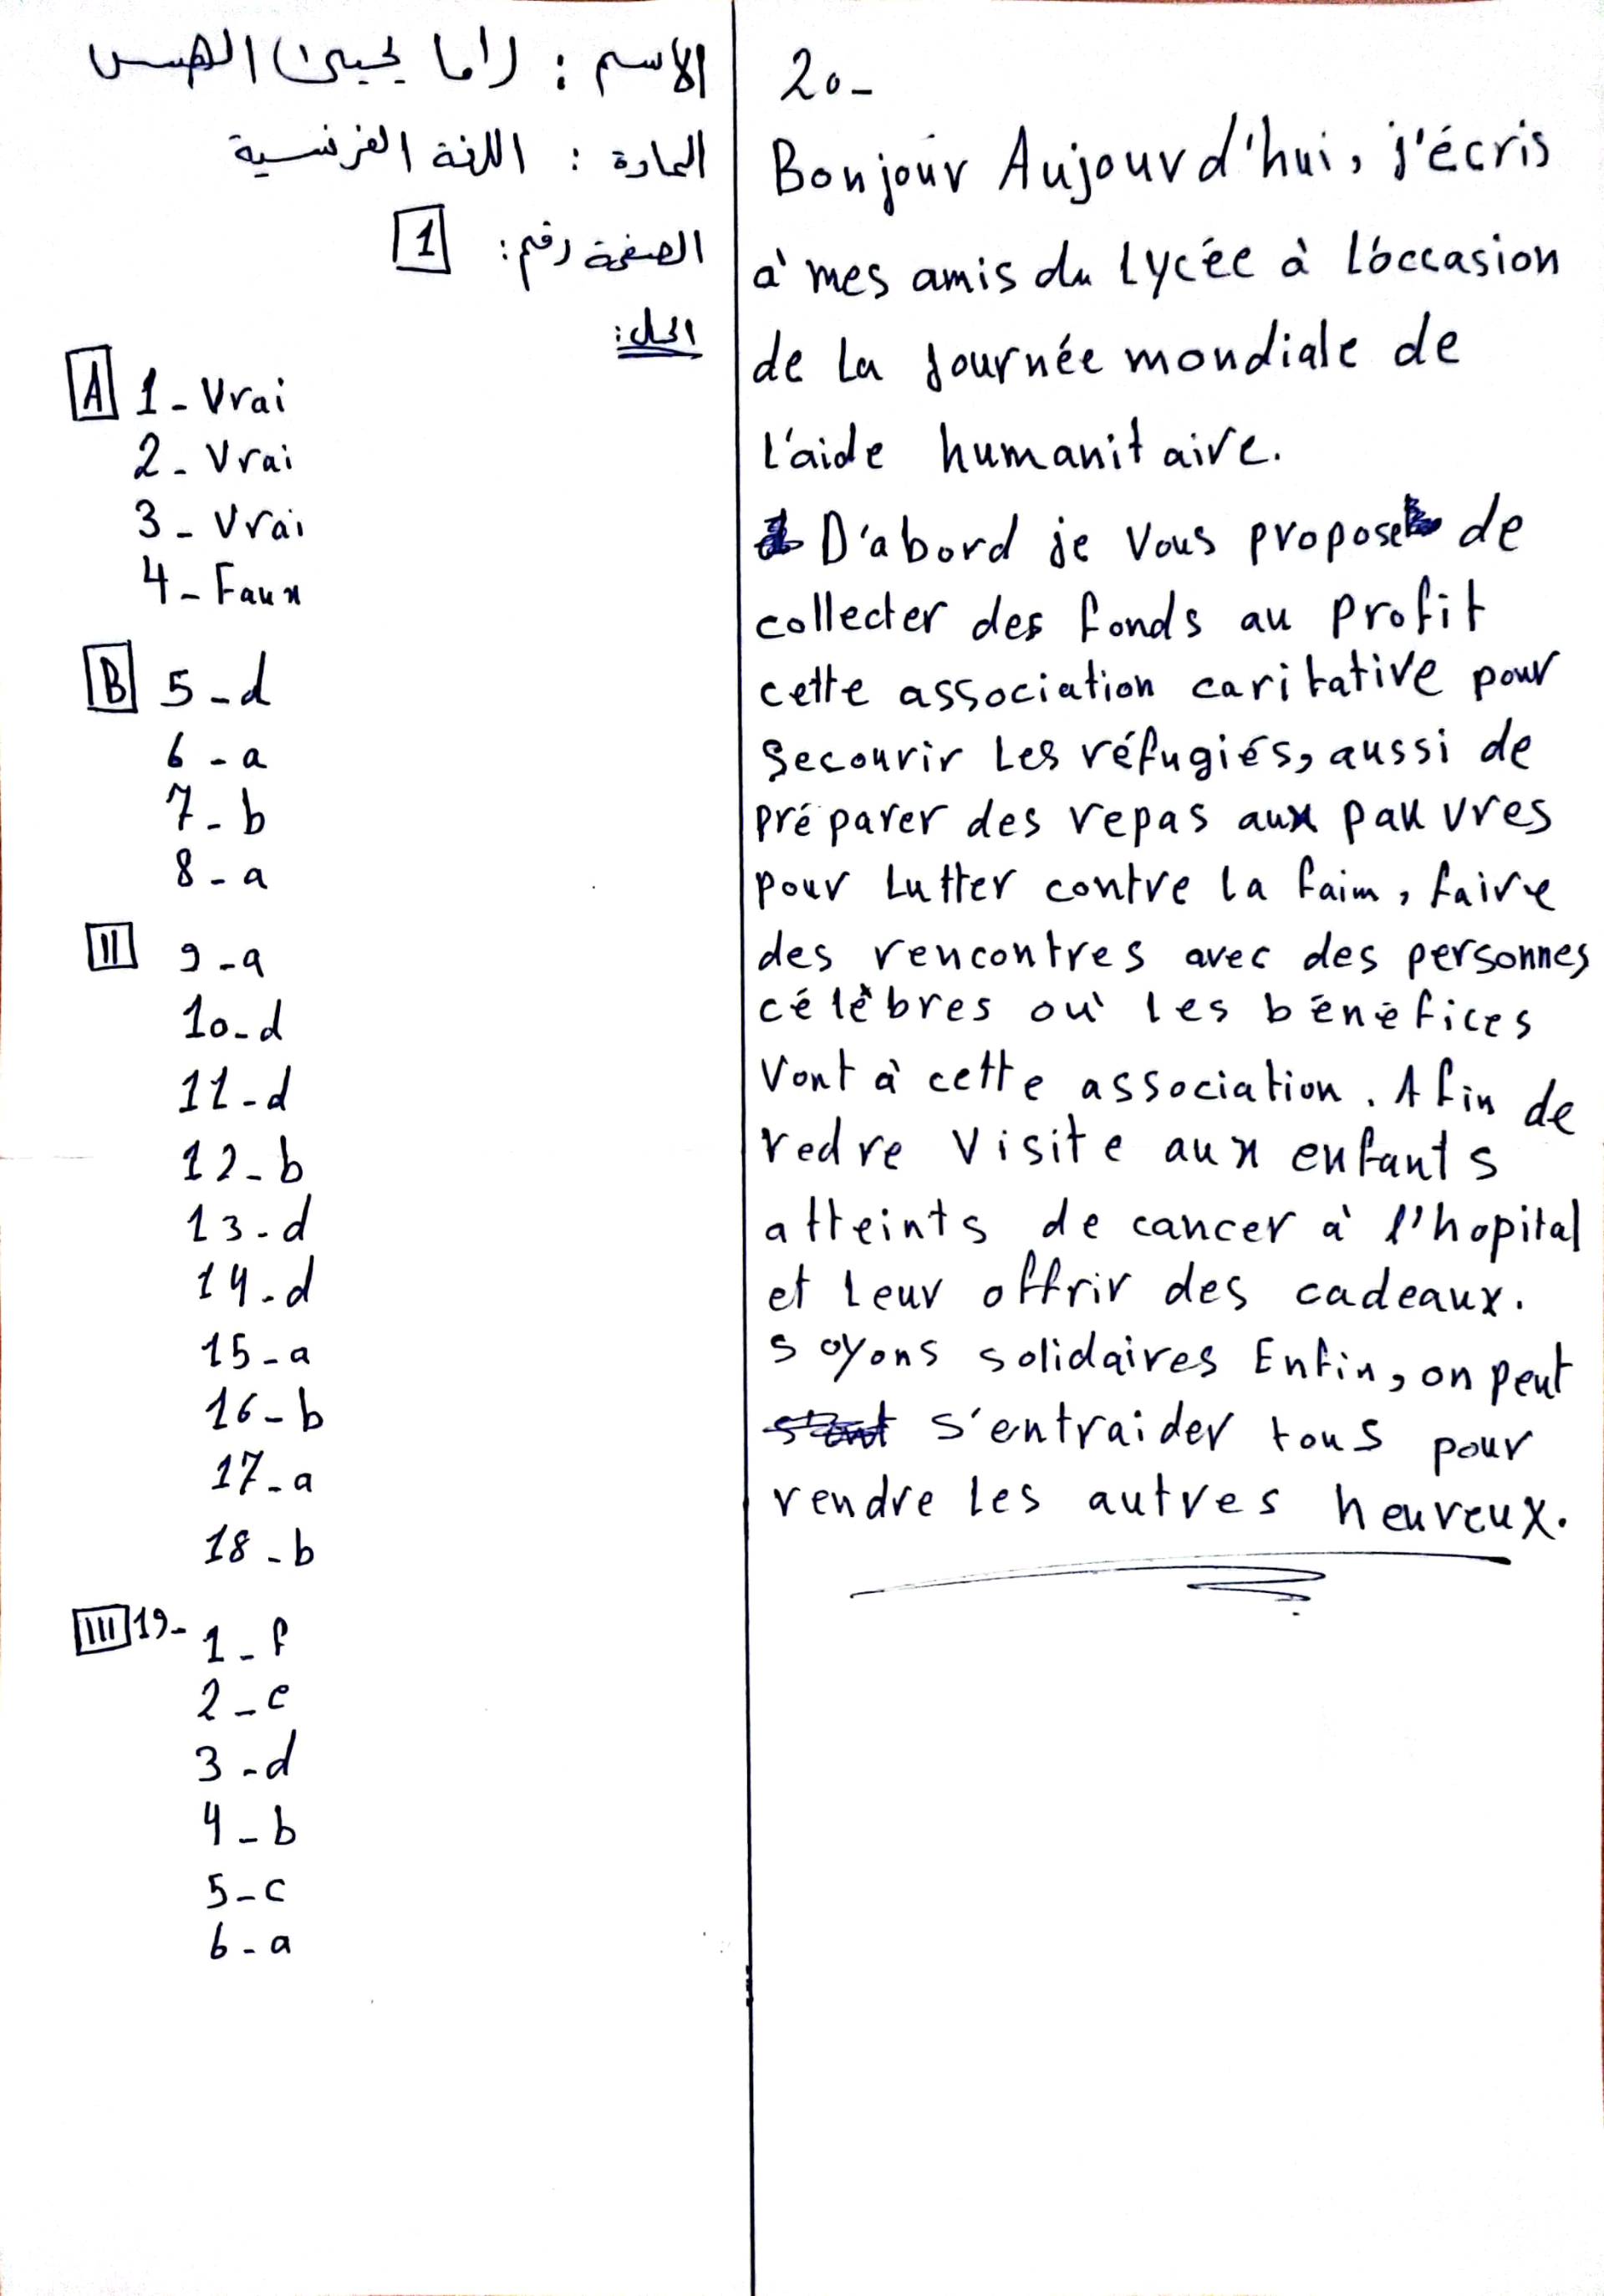 الاسم : راما يحيى الهس
المادة : اللغة الفرنسية
الصفحة رقم: 1
الحل:
A 1 - Vrai
2 - Vrai
3 - Vrai
4 - Faux
B 5 - d
6 - a
7 - b
8 - a
II 9 - a
10 - d
11 - d
12 - b
13 - d
14 - d
15 - a
16 - b
17 - a
18 - b
III 19- 1 - f
2 - e
3 - d
4 - b
5 - c
6 - a
20 -
Bonjour Aujourd'hui, j'écris
à mes amis du Lycée à l'occasion
de la Journée mondiale de
l'aide humanitaire.
D'abord je vous propose de
collecter des fonds au profit
cette association caritative pour
secourir les réfugiés, aussi de
préparer des repas aux pauvres
pour Lutter contre la faim, faire
des rencontres avec des personnes
célèbres où les bénéfices
vont à cette association. Afin de
redre visite aux enfants
atteints de cancer à l'hopital
et Leur offrir des cadeaux.
soyons solidaires Enfin, on peut
s'entraider tous pour
rendre les autres heureux.